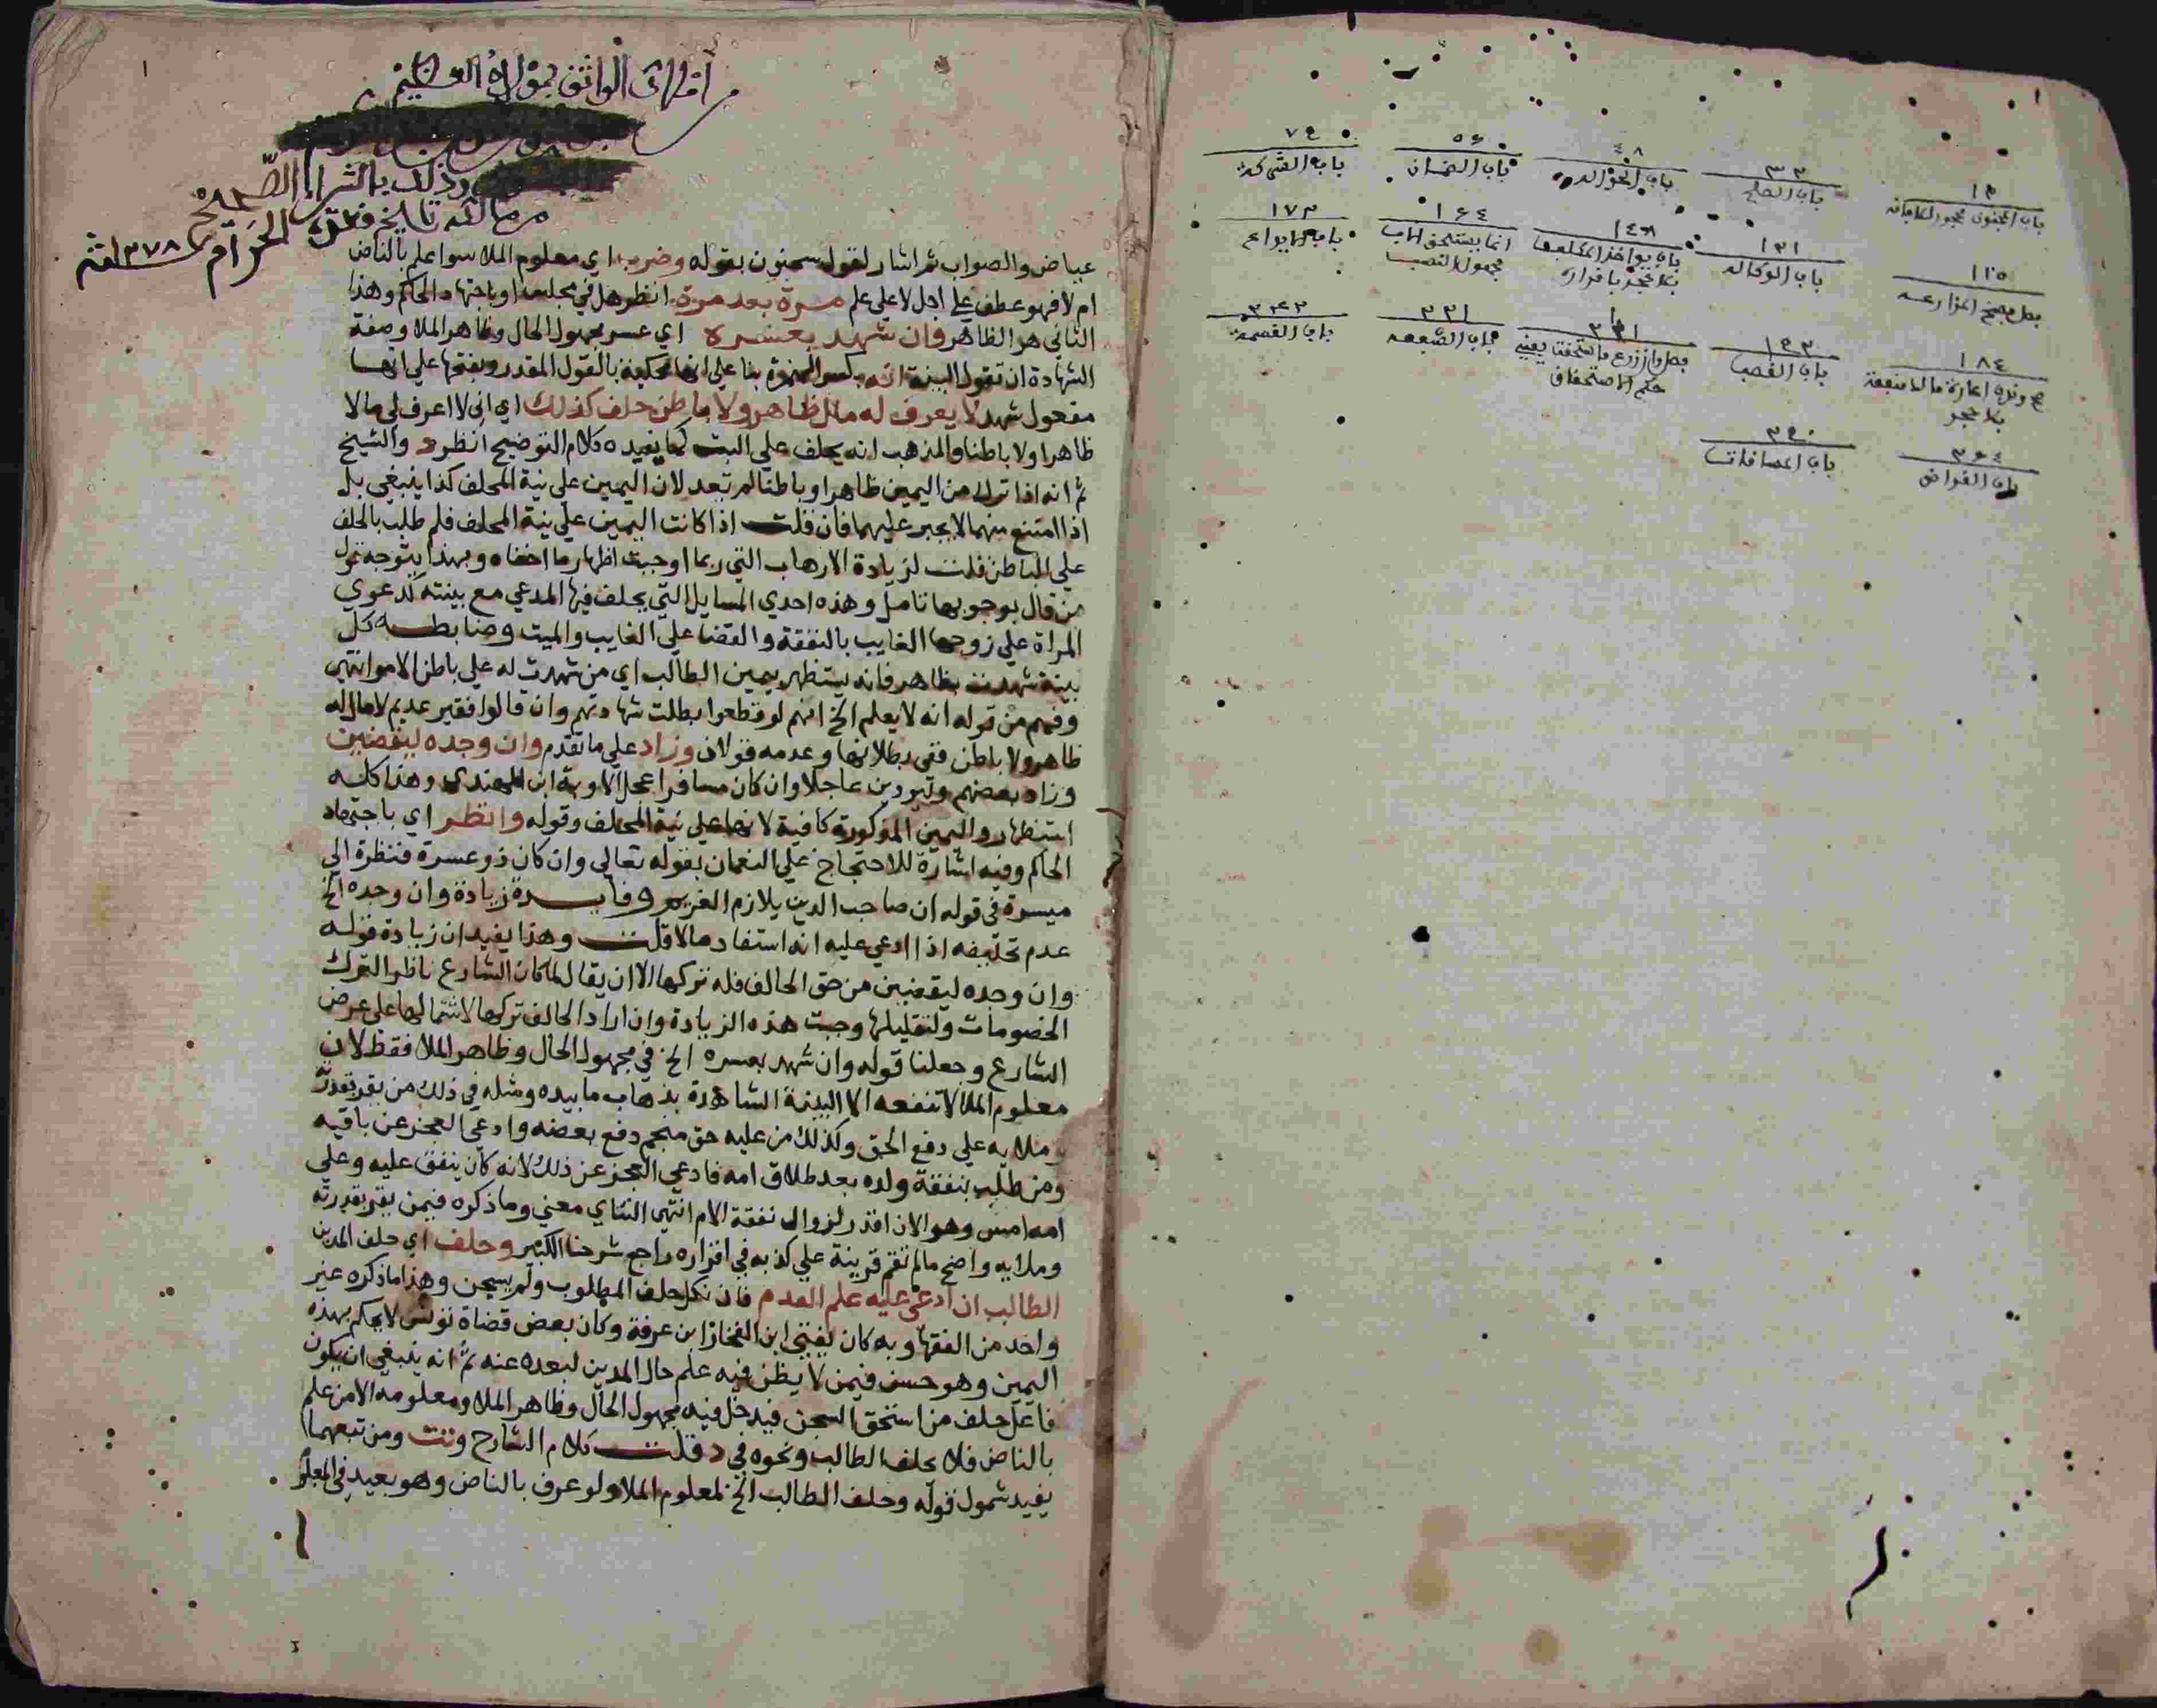 ١٣
باب المجنون محجور للافاقة
٣٣
باب الصلح
٤٨
باب الحوالة
٥٦
باب الضمان
٧٤
باب الشركة
١١٥
فصل يصح المزارعة
١٣١
باب الوكالة
١٤٨
باب يواخذ المكلف
بلا حجر باقراره
١٦٤
انما يستلحق الاب
مجهول النسب
١٧٣
باب الايداع
١٨٤
صح وندب اعارة مالك منفعة
بلا حجر
١٩٣
باب الغصب
فصل وان زرع فاستحقت
حكم الاستحقاق
٢٣١
باب الشفعة
باب القسمة
باب القراض
باب المساقات
الواثق بمولاه العظيم
وذلك بالشراء الصحيح
عياض والصواب ثم اشار لقول سحنون بقوله وضرب اي معلوم الملا سوا علم بالناض
ام لا فهو عطف علي اجل لا علي علم مرة بعد مرة انظر هل في مجلس او باجتهاد الحاكم وهذا
الثاني هو الظاهر فان شهد بعسره اي عسر مجهول الحال وظاهر الملا وصفة
الشهادة ان تقول البينة انه بكسر الهمزة بنا علي انها محكية بالقول المقدر وبفتحها علي انها
مفعول شهد لا يعرف له مال ظاهر ولا باطن حلف كذلك اي اني لا اعرف لي مالا
ظاهرا ولا باطنا والمذهب انه يحلف علي البت كما يفيده كلام التوضيح انظر د والشيخ
ثم انه اذا ترك من اليمين ظاهرا وباطنا لم تعد لان اليمين علي نية المحلف كذا ينبغي بل
اذا امتنع منهما لا يجبر عليهما فان قلت اذا كانت اليمين علي نية المحلف فلم طلب بالحلف
علي الباطن قلت لزيادة الارهاب التي ربما اوجبت اظهار ما اخفاه وبهذا يتوجه قول
من قال بوجوبها تامل وهذه احدي المسايل التي يحلف فيها المدعي مع بينته كدعوي
المراة علي زوجها الغايب بالنفقة والقضا علي الغايب والميت وضابطه كل
بينة شهدت بظاهر فانه يستظهر بيمين الطالب اي من شهدت له علي باطن الامر انتهي
وفهم من قوله انه لا يعلم الخ انهم لو قطعوا بطلت شهادتهم وان قالوا فقير عديم لا مال له
ظاهر ولا باطن ففي بطلانها وعدمه قولان وزاد علي ما تقدم وان وجده ليقضين
وزاد بعضهم وليودين عاجلا وان كان مسافرا عجل الاوبة ابن الهندي وهذا كله
استظهار واليمين المذكورة كافية لانها علي نية المحلف وقوله وانظر اي باجتهاد
الحاكم وفيه اشارة للاحتجاج علي النعمان بقوله تعالي وان كان ذو عسرة فنظرة الي
ميسرة في قوله ان صاحب الدين يلازم الغريم وفايدة زيادة وان وجده الخ
عدم تحليفه اذا ادعي عليه انه استفاد مالا قلت وهذا يفيد ان زيادة قوله
وان وجده ليقضين من حق الحالف فله تركها الا ان يقال لما كان الشارع ناظر الترك
الخصومات ولتقليلها وجبت هذه الزيادة وان اراد الحالف تركها لاشتمالها علي غرض
الشارع وجعلنا قوله وان شهد بعسره الخ في مجهول الحال وظاهر الملا فقط لان
معلوم الملا لا تنفعه الا البينة الشاهدة بذهاب ما بيده ومثله في ذلك من يقر بقدرته
وملايه علي دفع الحق وكذلك من عليه حق منجم دفع بعضه وادعي العجز عن باقيه
ومن طلب بنفقة ولده بعد طلاق امه فادعي العجز عن ذلك لانه كان ينفق عليه وعلي
امه امس وهو الان اقدر لزوال نفقة الام انتهي التتاي معني وما ذكره فيمن يقر بقدرته
وملايه واضح مالم تقم قرينة علي كذبه في اقراره راجع شرحنا الكبير وحلف اي حلف المدين
الطالب ان ادعي عليه علم العدم فان نكل حلف المطلوب ولم يسجن وهذا ما ذكره غير
واحد من الفقها وبه كان يفتي ابن الفخار ابن عرفة وكان بعض قضاة تونس لا يحكم بهذه
اليمين وهو حسن فيمن لا يظن فيه علم حال المدين لبعده عنه ثم انه ينبغي ان يكون
فاعل حلف من استحق السجن فيدخل فيه مجهول الحال وظاهر الملا ومعلومه الا من علم
بالناض فلا يحلف الطالب ونحوه في د قلت كلام الشارح وتت ومن تبعهما
يفيد شمول قوله وحلف الطالب الخ لمعلوم الملا ولو عرف بالناض وهو بعيد في المعلوم